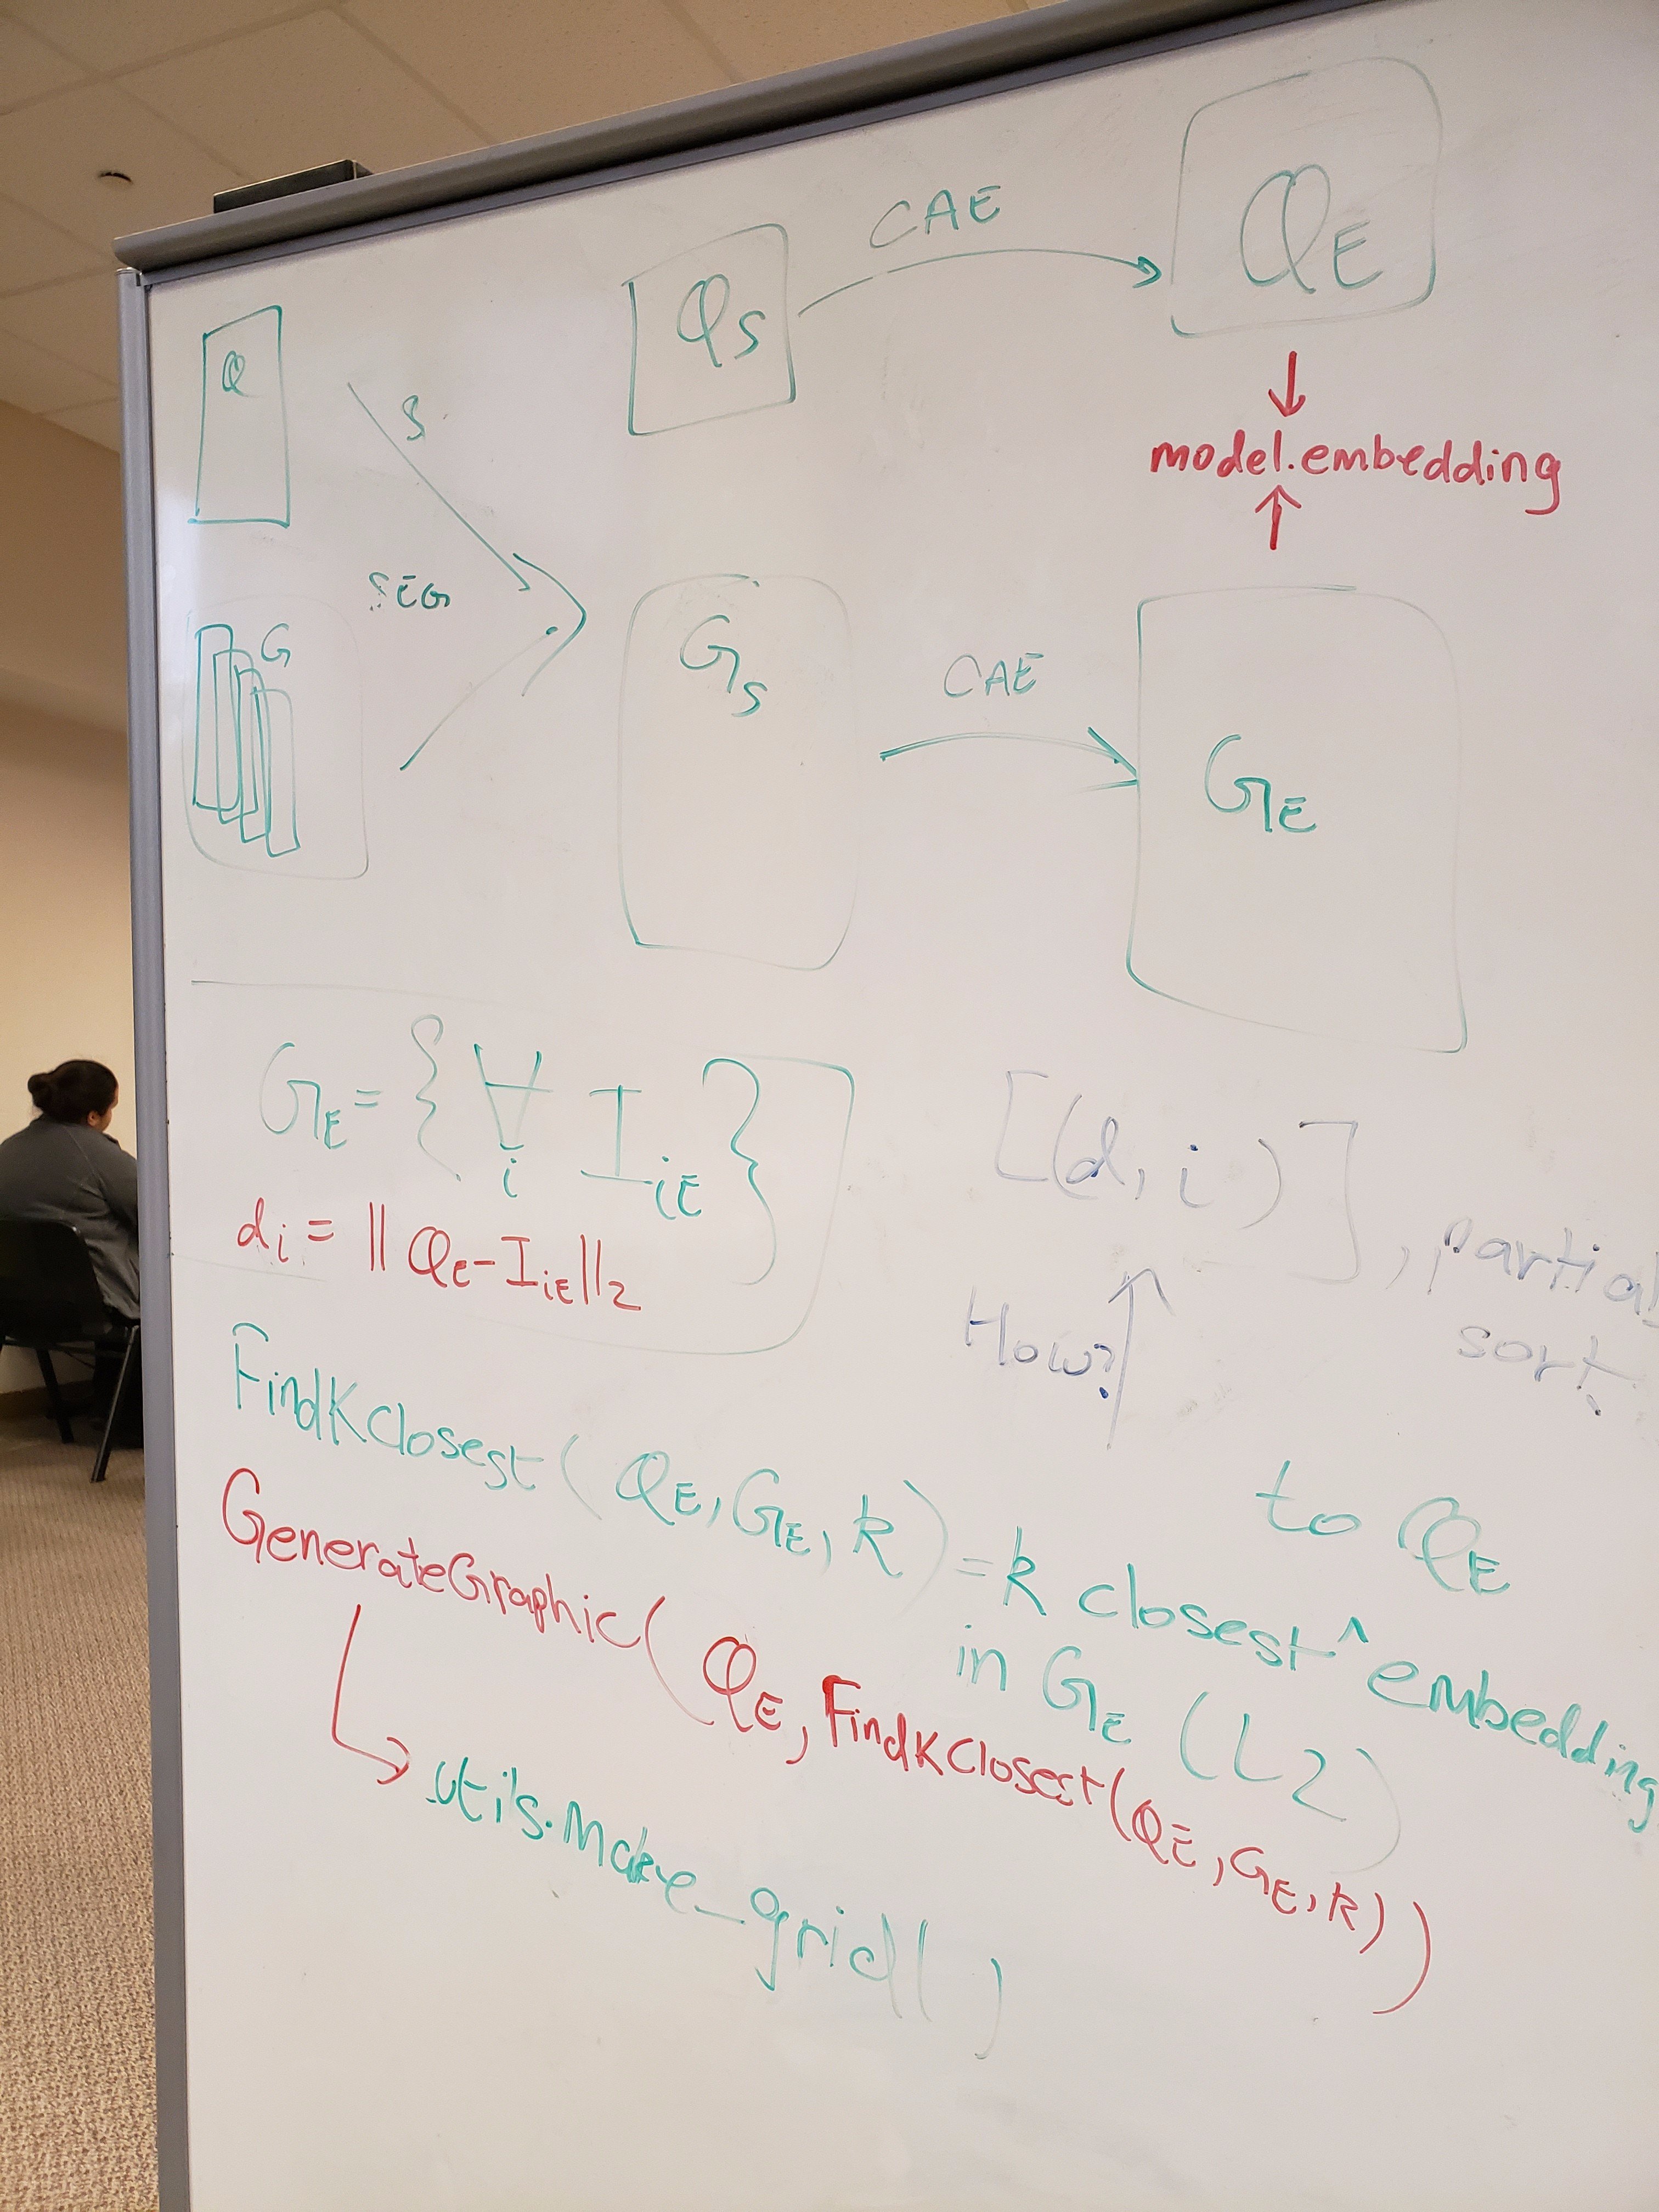 CAE
Q_E
Q_S
Q
S
model.embedding
SEG
G
G_S
CAE
G_E
G_E = { ∀_i I_iE }
[(d, i)], partial
sort.
d_i = || Q_E - I_iE ||_2
How?
FindKClosest(Q_E, G_E, k) = k closest ^ embedding
to Q_E
in G_E (L2)
GenerateGraphic(Q_E, FindKClosest(Q_E, G_E, k))
utils.make_grid()